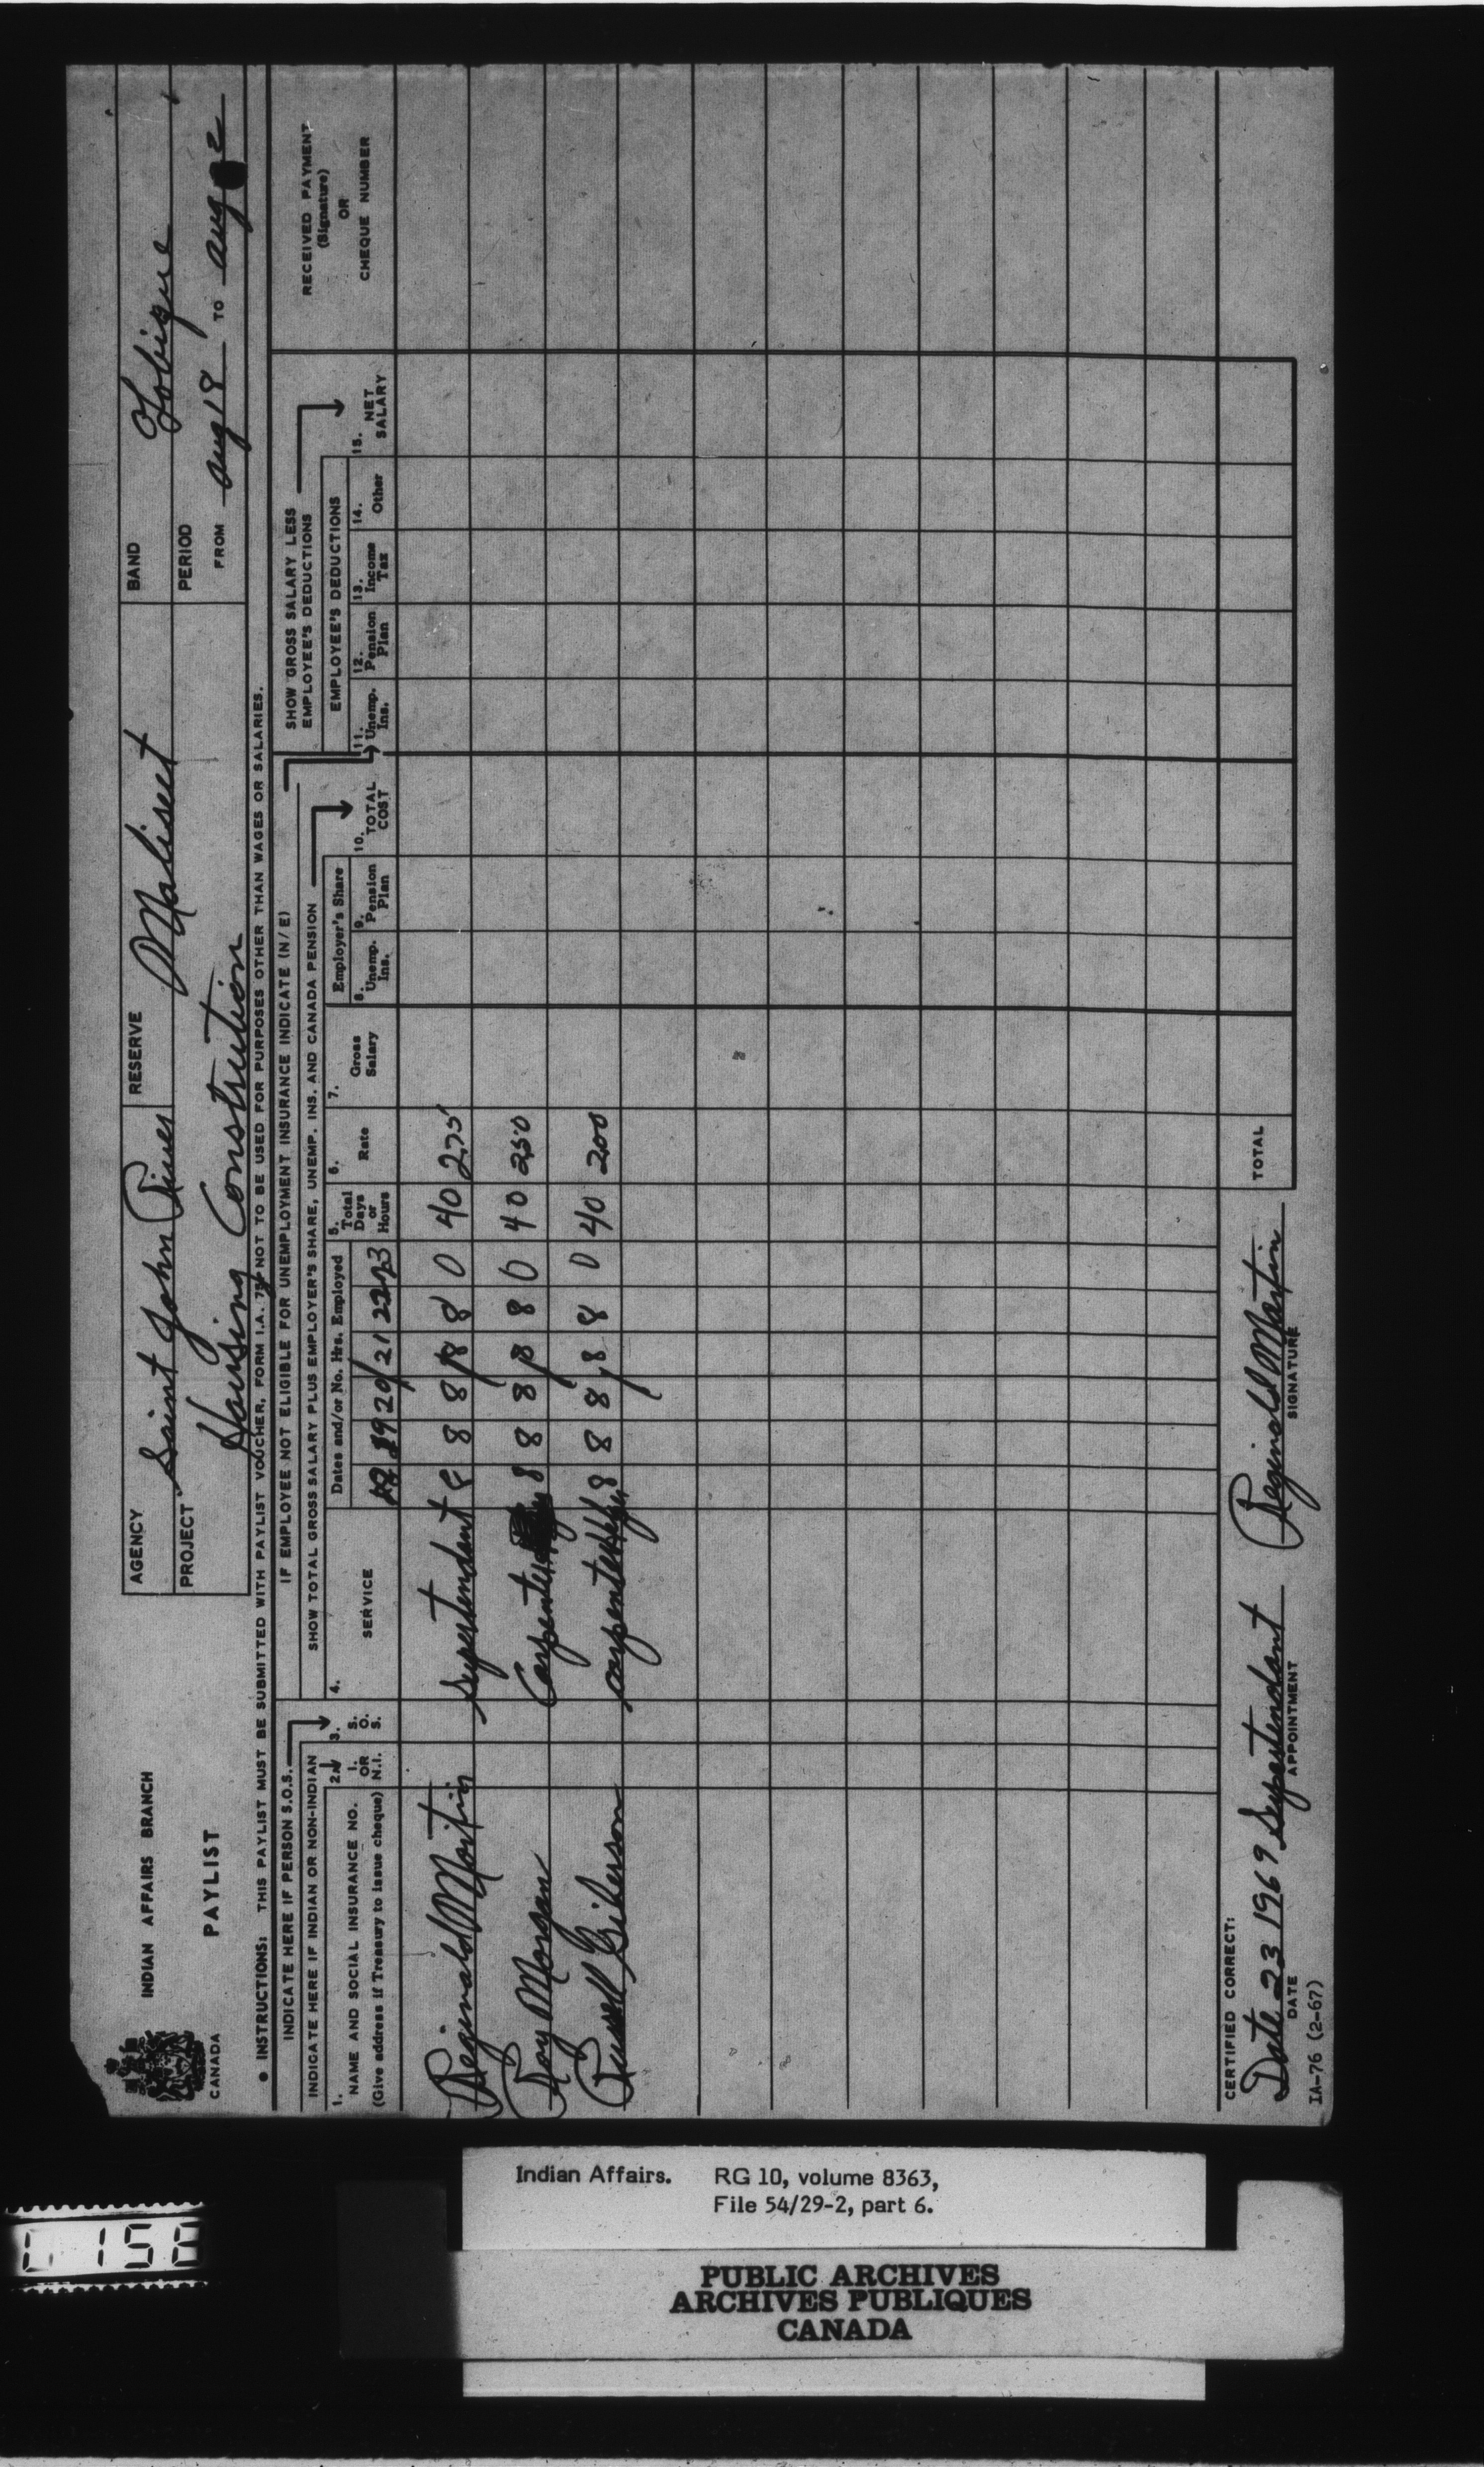 INDIAN AFFAIRS BRANCH
CANADA
PAYLIST
AGENCY Saint John River
RESERVE Maliseet
BAND Tobique
PROJECT Housing Constrution
PERIOD
FROM Aug 18 TO Aug 2
• INSTRUCTIONS: THIS PAYLIST MUST BE SUBMITTED WITH PAYLIST VOUCHER, FORM I.A. 75. NOT TO BE USED FOR PURPOSES OTHER THAN WAGES OR SALARIES.
INDICATE HERE IF PERSON S.O.S.
IF EMPLOYEE NOT ELIGIBLE FOR UNEMPLOYMENT INSURANCE INDICATE (N/E)
INDICATE HERE IF INDIAN OR NON-INDIAN
SHOW TOTAL GROSS SALARY PLUS EMPLOYER'S SHARE, UNEMP. INS. AND CANADA PENSION
SHOW GROSS SALARY LESS
EMPLOYEE'S DEDUCTIONS
1. NAME AND SOCIAL INSURANCE NO.
(Give address if Treasury to issue cheque)
2. I. OR N.I.
3. S. O. S.
4. SERVICE
Dates and/or No. Hrs. Employed
18 19 20 21 22 23
5. Total Days or Hours
6. Rate
7. Gross Salary
Employer's Share
8. Unemp. Ins.
9. Pension Plan
10. TOTAL COST
EMPLOYEE'S DEDUCTIONS
11. Unemp. Ins.
12. Pension Plan
13. Income Tax
14. Other
15. NET SALARY
RECEIVED PAYMENT
(Signature)
OR
CHEQUE NUMBER
Reginald Martin Supertendant 8 8 8 8 8 0 40 275
Roy Morgan Carpenter 8 8 8 8 8 0 40 250
Russell Giberson carpenter 8 8 8 8 8 0 40 200
TOTAL
CERTIFIED CORRECT:
Date 23 1969 Supertendant Reginald Martin
DATE APPOINTMENT SIGNATURE
IA-76 (2-67)
Indian Affairs. RG 10, volume 8363,
File 54/29-2, part 6.
PUBLIC ARCHIVES
ARCHIVES PUBLIQUES
CANADA